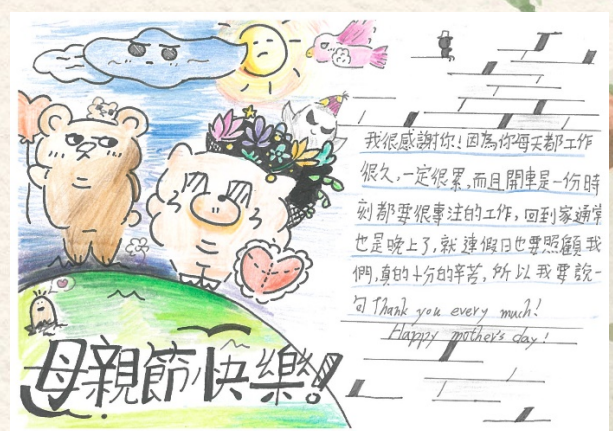 我很感謝你！因為你每天都工作
很久，一定很累，而且開車是一份時
刻都要很專注的工作，回到家通常
也是晚上了，就連假日也要照顧我
們，真的十分的辛苦，所以我要說一
句 Thank you every much!
Happy mother's day!
母親節快樂！